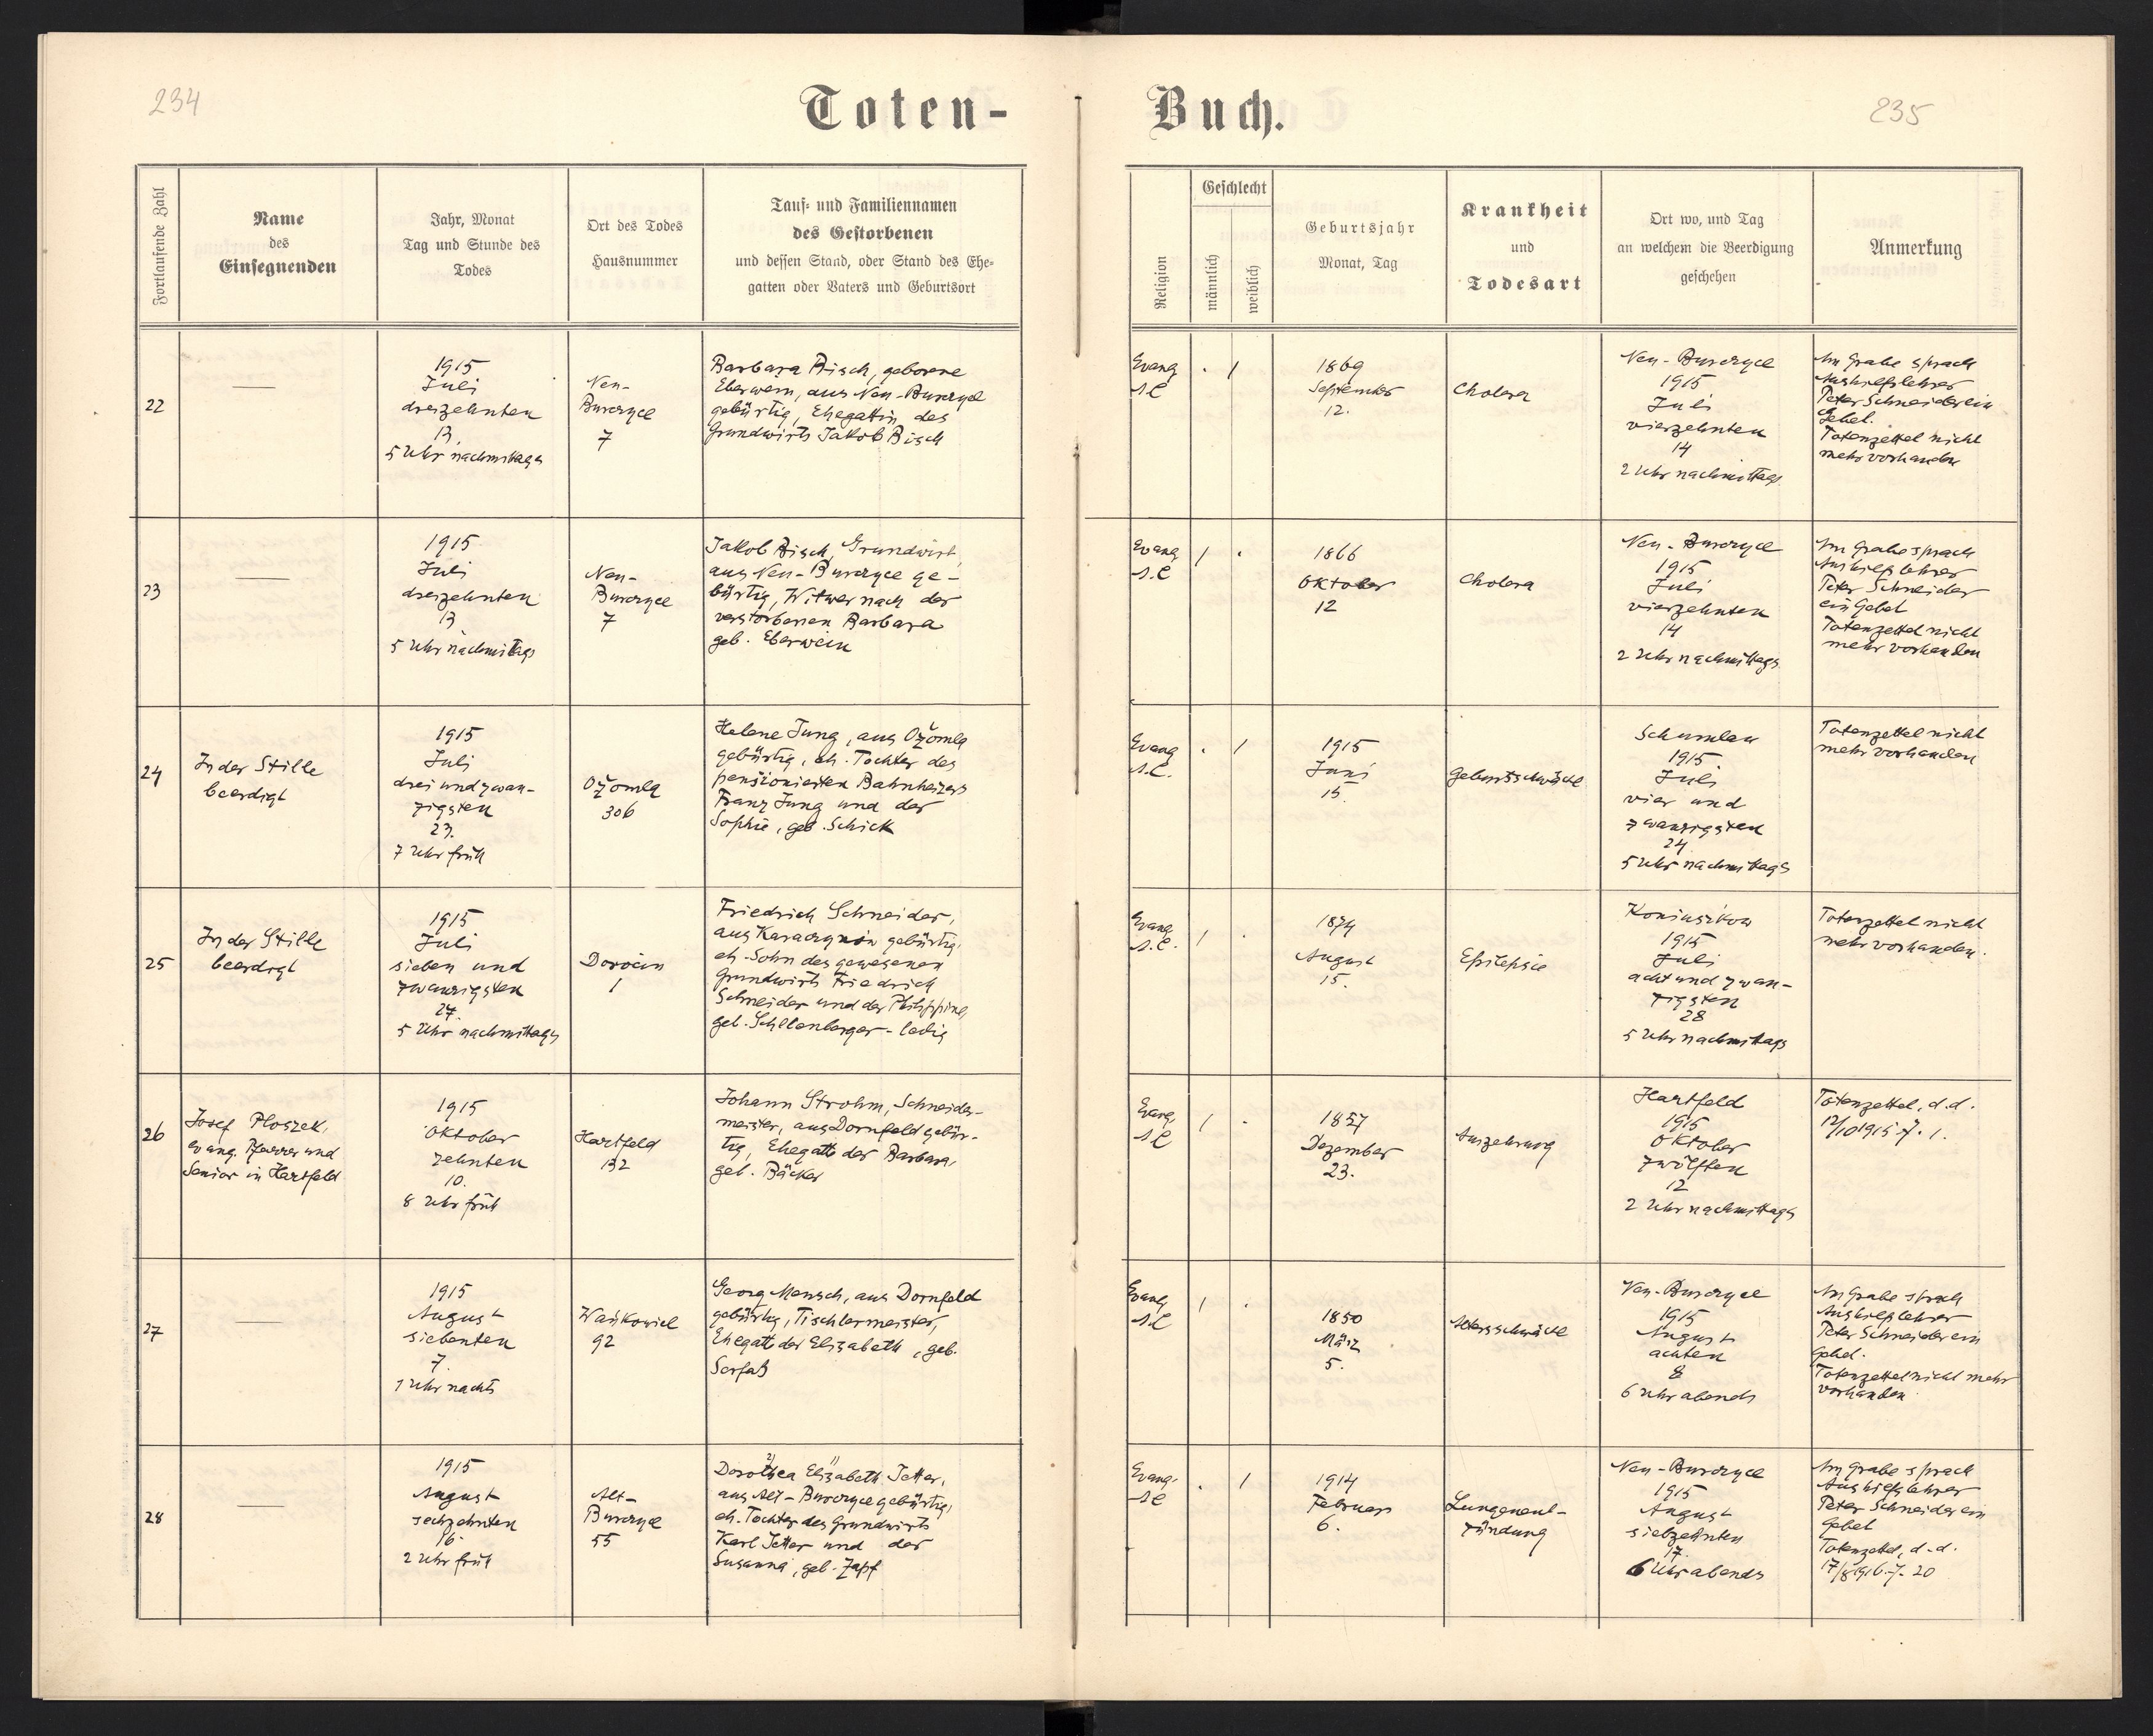 234
Toten-
Buch.
235
Fortlaufende Zahl
Name
des
Einsegnenden
Jahr, Monat
Tag und Stunde des
Todes
Ort des Todes
Hausnummer
Tauf- und Familiennamen
des Gestorbenen
und dessen Stand, oder Stand des Ehe-
gatten oder Vaters und Geburtsort
Religion
Geschlecht
männlich
weiblich
Geburtsjahr
Monat, Tag
Krankheit
und
Todesart
Ort wo, und Tag
an welchem die Beerdigung
geschehen
Anmerkung
22
—
1915
Juli
dreizehnten
13.
5 Uhr nachmittags
Neu-
Burczyce
7
Barbara Bisch, geborene
Eberwein, aus Neu-Burczyce
gebürtig, Ehegattin des
Grundwirts Jakob Bisch
Evang
A.C
. 1
1869
September
12.
Cholera
Neu-Burczyce
1915
Juli
vierzehnten
14
2 Uhr nachmittags
Am Grabe sprach
Aushilfslehrer
Peter Schneider ein
Gebet.
Totenzettel nicht
mehr vorhanden
23
—
1915
Juli
dreizehnten
13.
5 Uhr nachmittags
Neu-
Burczyce
7
Jakob Bisch, Grundwirt,
aus Neu-Burczyce ge-
bürtig, Witwer nach der
verstorbenen Barbara
geb. Eberwein
Evang
A.C
1 .
1866
Oktober
12
Cholera
Neu-Burczyce
1915
Juli
vierzehnten
14
2 Uhr nachmittags
Am Grabe sprach
Aushilfslehrer
Peter Schneider
ein Gebet
Totenzettel nicht
mehr vorhanden
24
In der Stille
beerdigt
1915
Juli
drei und zwan-
zigsten
23.
7 Uhr früh
Ożomla
306
Helene Jung, aus Ożomla
gebürtig, eh. Tochter des
pensionierten Bahnheizers
Franz Jung und der
Sophie, geb. Schick
Evang
A.C.
. 1
1915
Juni
15.
Geburtsschwäche
Schumlau
1915.
Juli
vier und
zwanzigsten
24.
5 Uhr nachmittags
Totenzettel nicht
mehr vorhanden
25
In der Stille
beerdigt
1915
Juli
sieben und
zwanzigsten
27.
5 Uhr nachmittags
Dorocin
1
Friedrich Schneider,
aus gebürtig,
eh. Sohn des gewesenen
Grundwirts Friedrich
Schneider und der Philippine,
geb. - ledig
Evang
A.C.
1 .
1874
August
15.
Epilepsie
1915
Juli
acht und zwan-
zigsten
28
5 Uhr nachmittags
Totenzettel nicht
mehr vorhanden.
26
Josef Ploszek,
evang. Pfarrer und
Senior in Hartfeld
1915
Oktober
zehnten
10.
8 Uhr früh
Hartfeld
132
Johann Strohm, Schneider-
meister, aus Dornfeld gebür-
tig, Ehegatte der Barbara,
geb. Bäcker
Evang.
A.C
1 .
1857
Dezember
23.
Auszehrung
Hartfeld
1915
Oktober
zwölften
12
2 Uhr nachmittags
Totenzettel, d.d.
12/10 1915 Z. 1.
27
—
1915
August
siebenten
7.
1 Uhr nachts
Wańkowice
92
Georg Mensch, aus Dornfeld
gebürtig, Tischlermeister,
Ehegatte der Elisabeth, geb.
Sorfaß
Evang
A.C
1 .
1850
März
5.
Altersschwäche
Neu-Burczyce
1915
August
achten
8
6 Uhr abends
Am Grabe sprach
Aushilfslehrer
Peter Schneider ein
Gebet.
Totenzettel nicht mehr
vorhanden
28
—
1915
August
sechzehnten
16.
2 Uhr früh
Alt-
Burczyce
55
Dorothea Elisabeth Jetter,
aus Alt-Burczyce gebürtig,
eh. Tochter des Grundwirts
Karl Jetter und der
Susanna, geb. Zapf
Evang.
A.C
. 1
1914
Februar
6.
Lungenent-
zündung
Neu-Burczyce
1915
August
siebzehnten
17.
6 Uhr abends
Am Grabe sprach
Aushilfslehrer
Peter Schneider ein
Gebet
Totenzettel, d.d.
17/8 1916. Z. 20